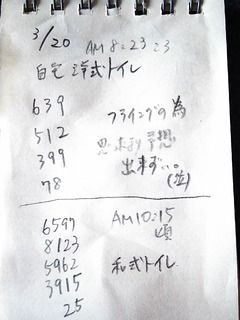 3/20 AM 8:23:3
自宅 洋式トイレ
639
512
399
78
フライングの為
予想
出来ず。
(泣)
6597
8123
5962
3915
25
AM10:15
頃
和式トイレ